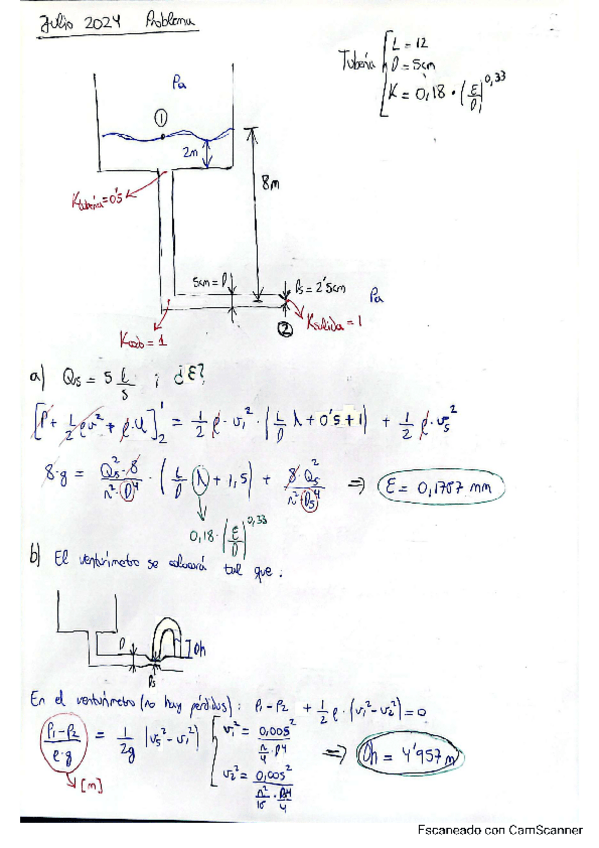 Julio 2024 Problema
Tubería { L = 12
D = 5cm
K = 0,18 · (ε/D)^0,33
Pa
①
2m
8m
Ktubería = 0'5
5cm = D
Ds = 2'5cm
Pa
Kcodo = 1
②
Ksalida = 1
a) Qs = 5 l/s ; ¿ε?
[P + 1/2 ρv² + ρ·U]₂¹ = 1/2 ρ·v₁² · (L/D λ + 0's + 1) + 1/2 ρ·vs²
8·g = Qs²·8/π²·D⁴ · (L/D λ + 1,5) + 8·Qs²/π²·Ds⁴ ⇒ ε = 0,1787 mm
0,18 · (ε/D)^0,33
b) El venturímetro se colocará tal que :
D
Ds
Dh
En el venturímetro (no hay pérdidas) : P₁-P₂ + 1/2 ρ·(v₁²-v₂²) = 0
P₁-P₂/ρ·g = 1/2g |vs²-v₁²| { v₁² = 0,005²/π/4·D4
⇒ Dh = 4'957 m
v₂² = 0,005²/π²/16·D4/4
→ [m]
Escaneado con CamScanner